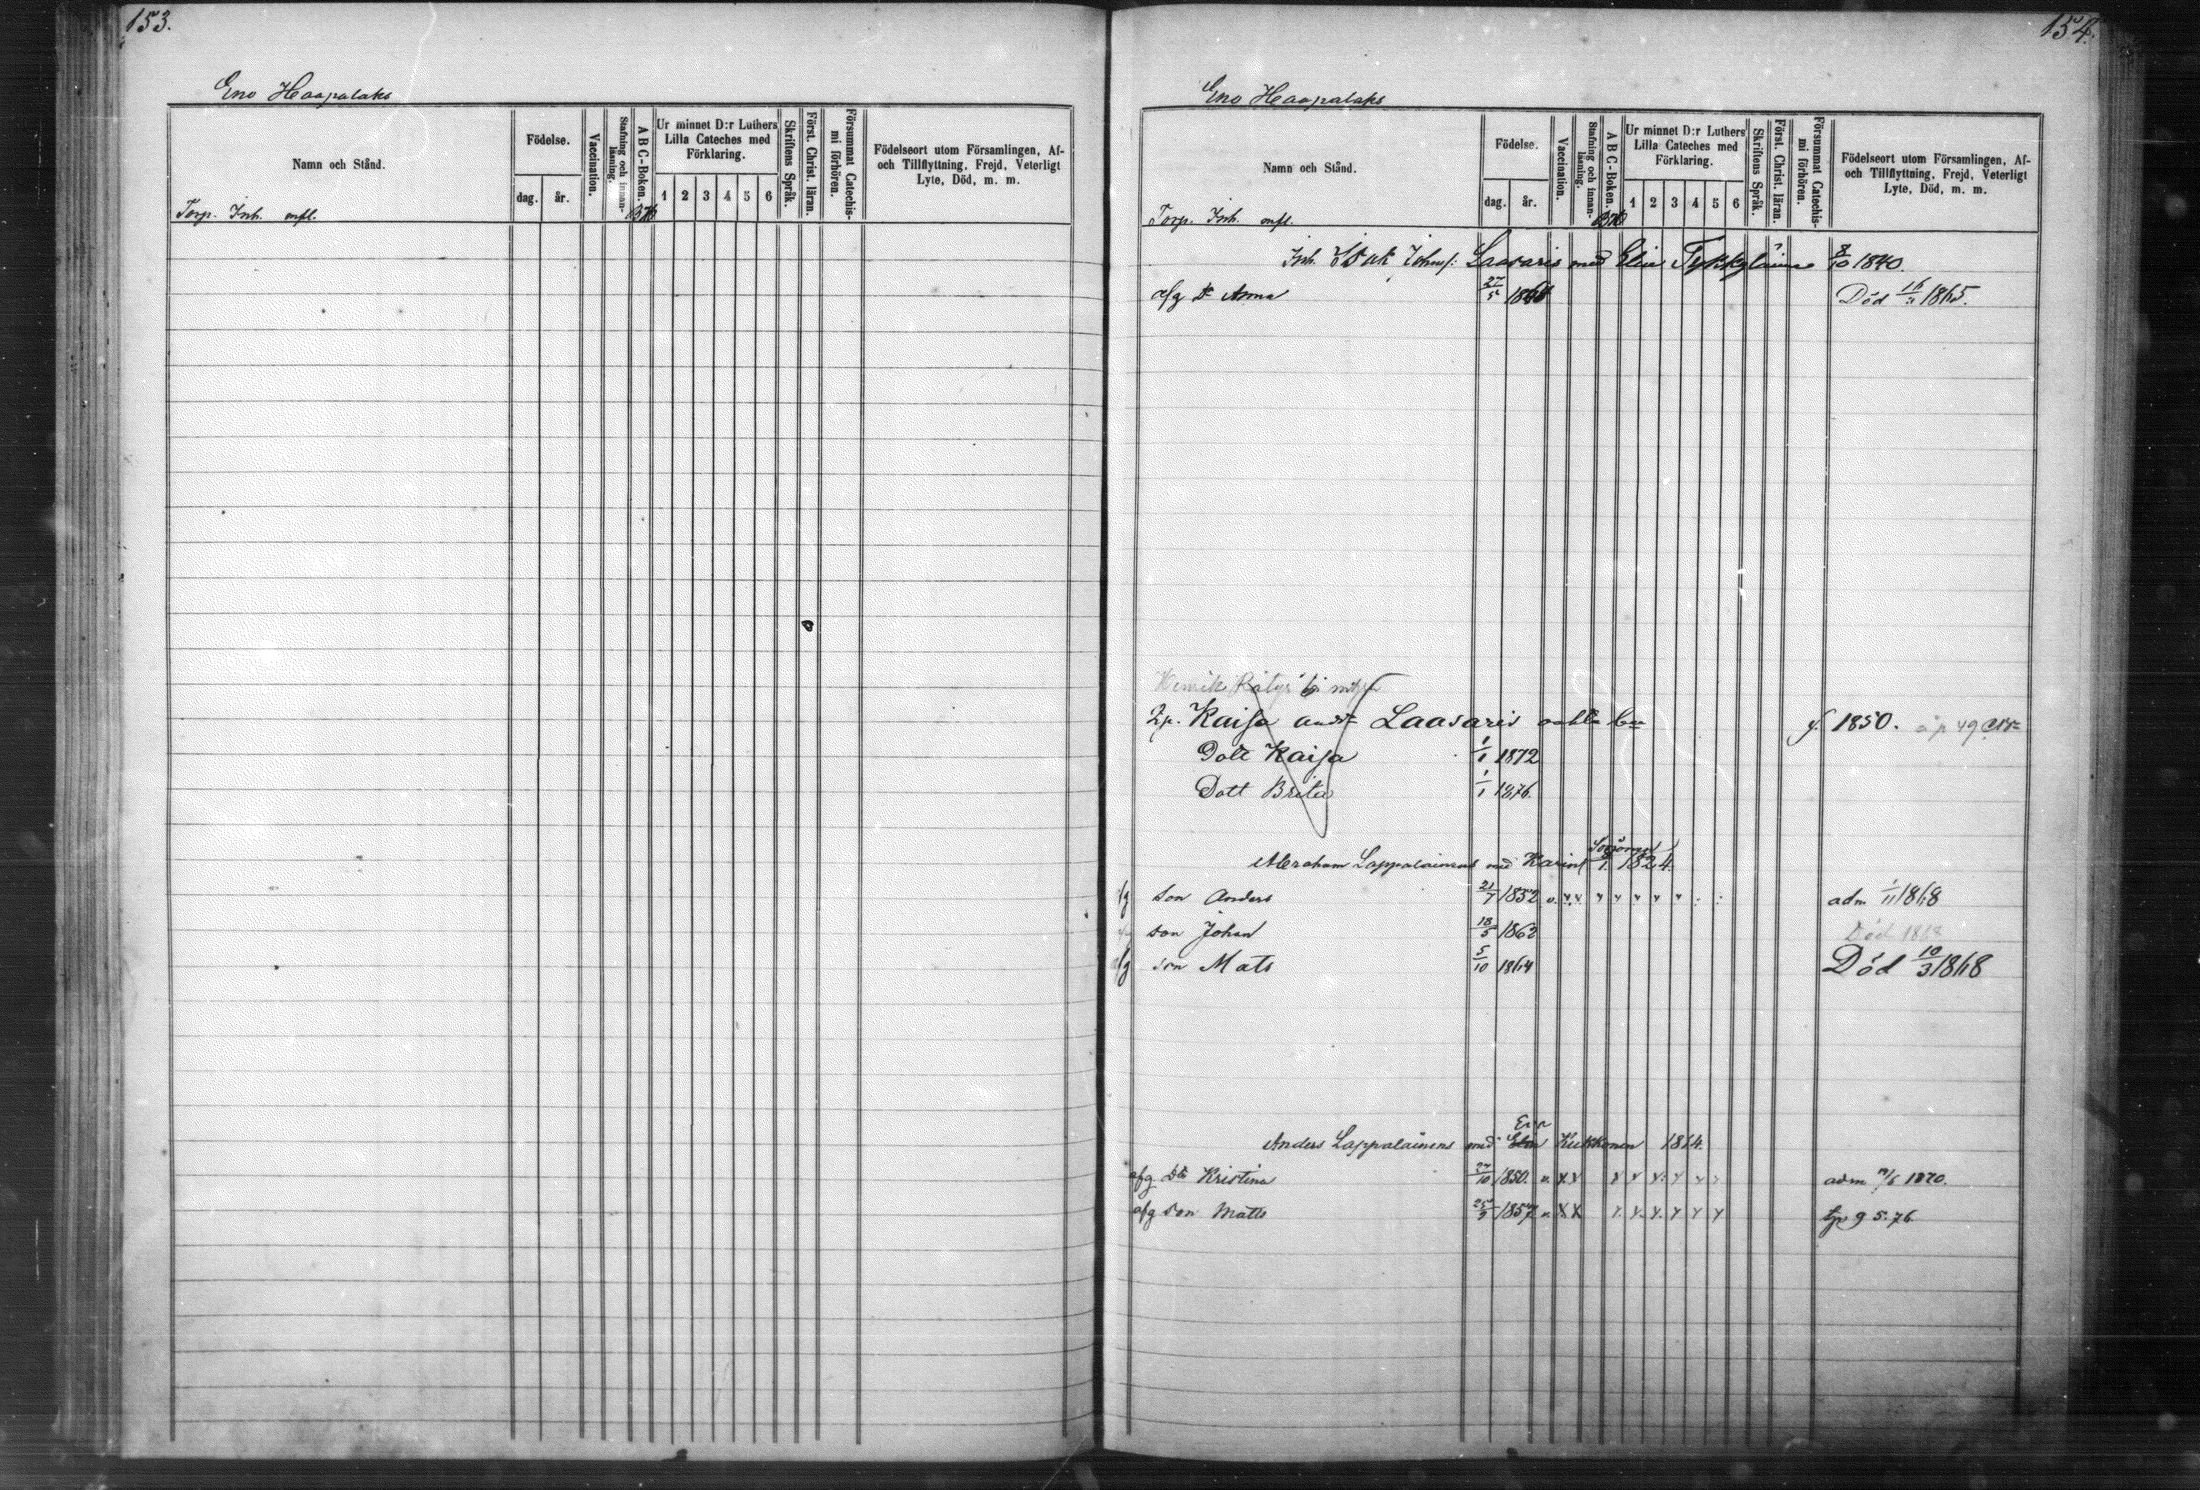 153.
Eno Haapalaks
Namn och Stånd.
Födelse.
dag.
år.
Vaccination.
Stafning och innan-
läsning.
A B C-Boken.
Ur minnet D:r Luthers
Lilla Cateches med
Förklaring.
1 2 3 4 5 6
Skriftens Språk.
Först. Christ. läran.
Försummat Catechis-
mi förhören.
Födelseort utom Församlingen, Af-
och Tillflyttning, Frejd, Veterligt
Lyte, Död, m. m.
Torp. Inh. mfl.
154.
Eno Haapalaks
Namn och Stånd.
Födelse.
dag.
år.
Vaccination.
Stafning och innan-
läsning.
A B C-Boken.
Ur minnet D:r Luthers
Lilla Cateches med
Förklaring.
1 2 3 4 5 6
Skriftens Språk.
Först. Christ. läran.
Försummat Catechis-
mi förhören.
Födelseort utom Församlingen, Af-
och Tillflyttning, Frejd, Veterligt
Lyte, Död, m. m.
Torp. Inh. mfl.
Inh. Isak Laasaris med Elin 8/10 1840.
afg Dr Anna 27/5 Död 1865.
Henrik
Kaisa Laasaris f. 1850.
Dott Kaisa 1/1 1872
Dott Brita 1/1 1876
Abraham Lappalainens med Karin 1824.
son Anders 21/7 1852 adm 1/11 1868
son Johan 18/5 1862 Död
son Mats 5/10 1864 Död 10/3 1868
Anders Lappalainens med Kukkonen 1814.
afg Dtr Kristina 27/10 1850. adm 1870.
afg son Matts 25/9 1857 9 5. 76